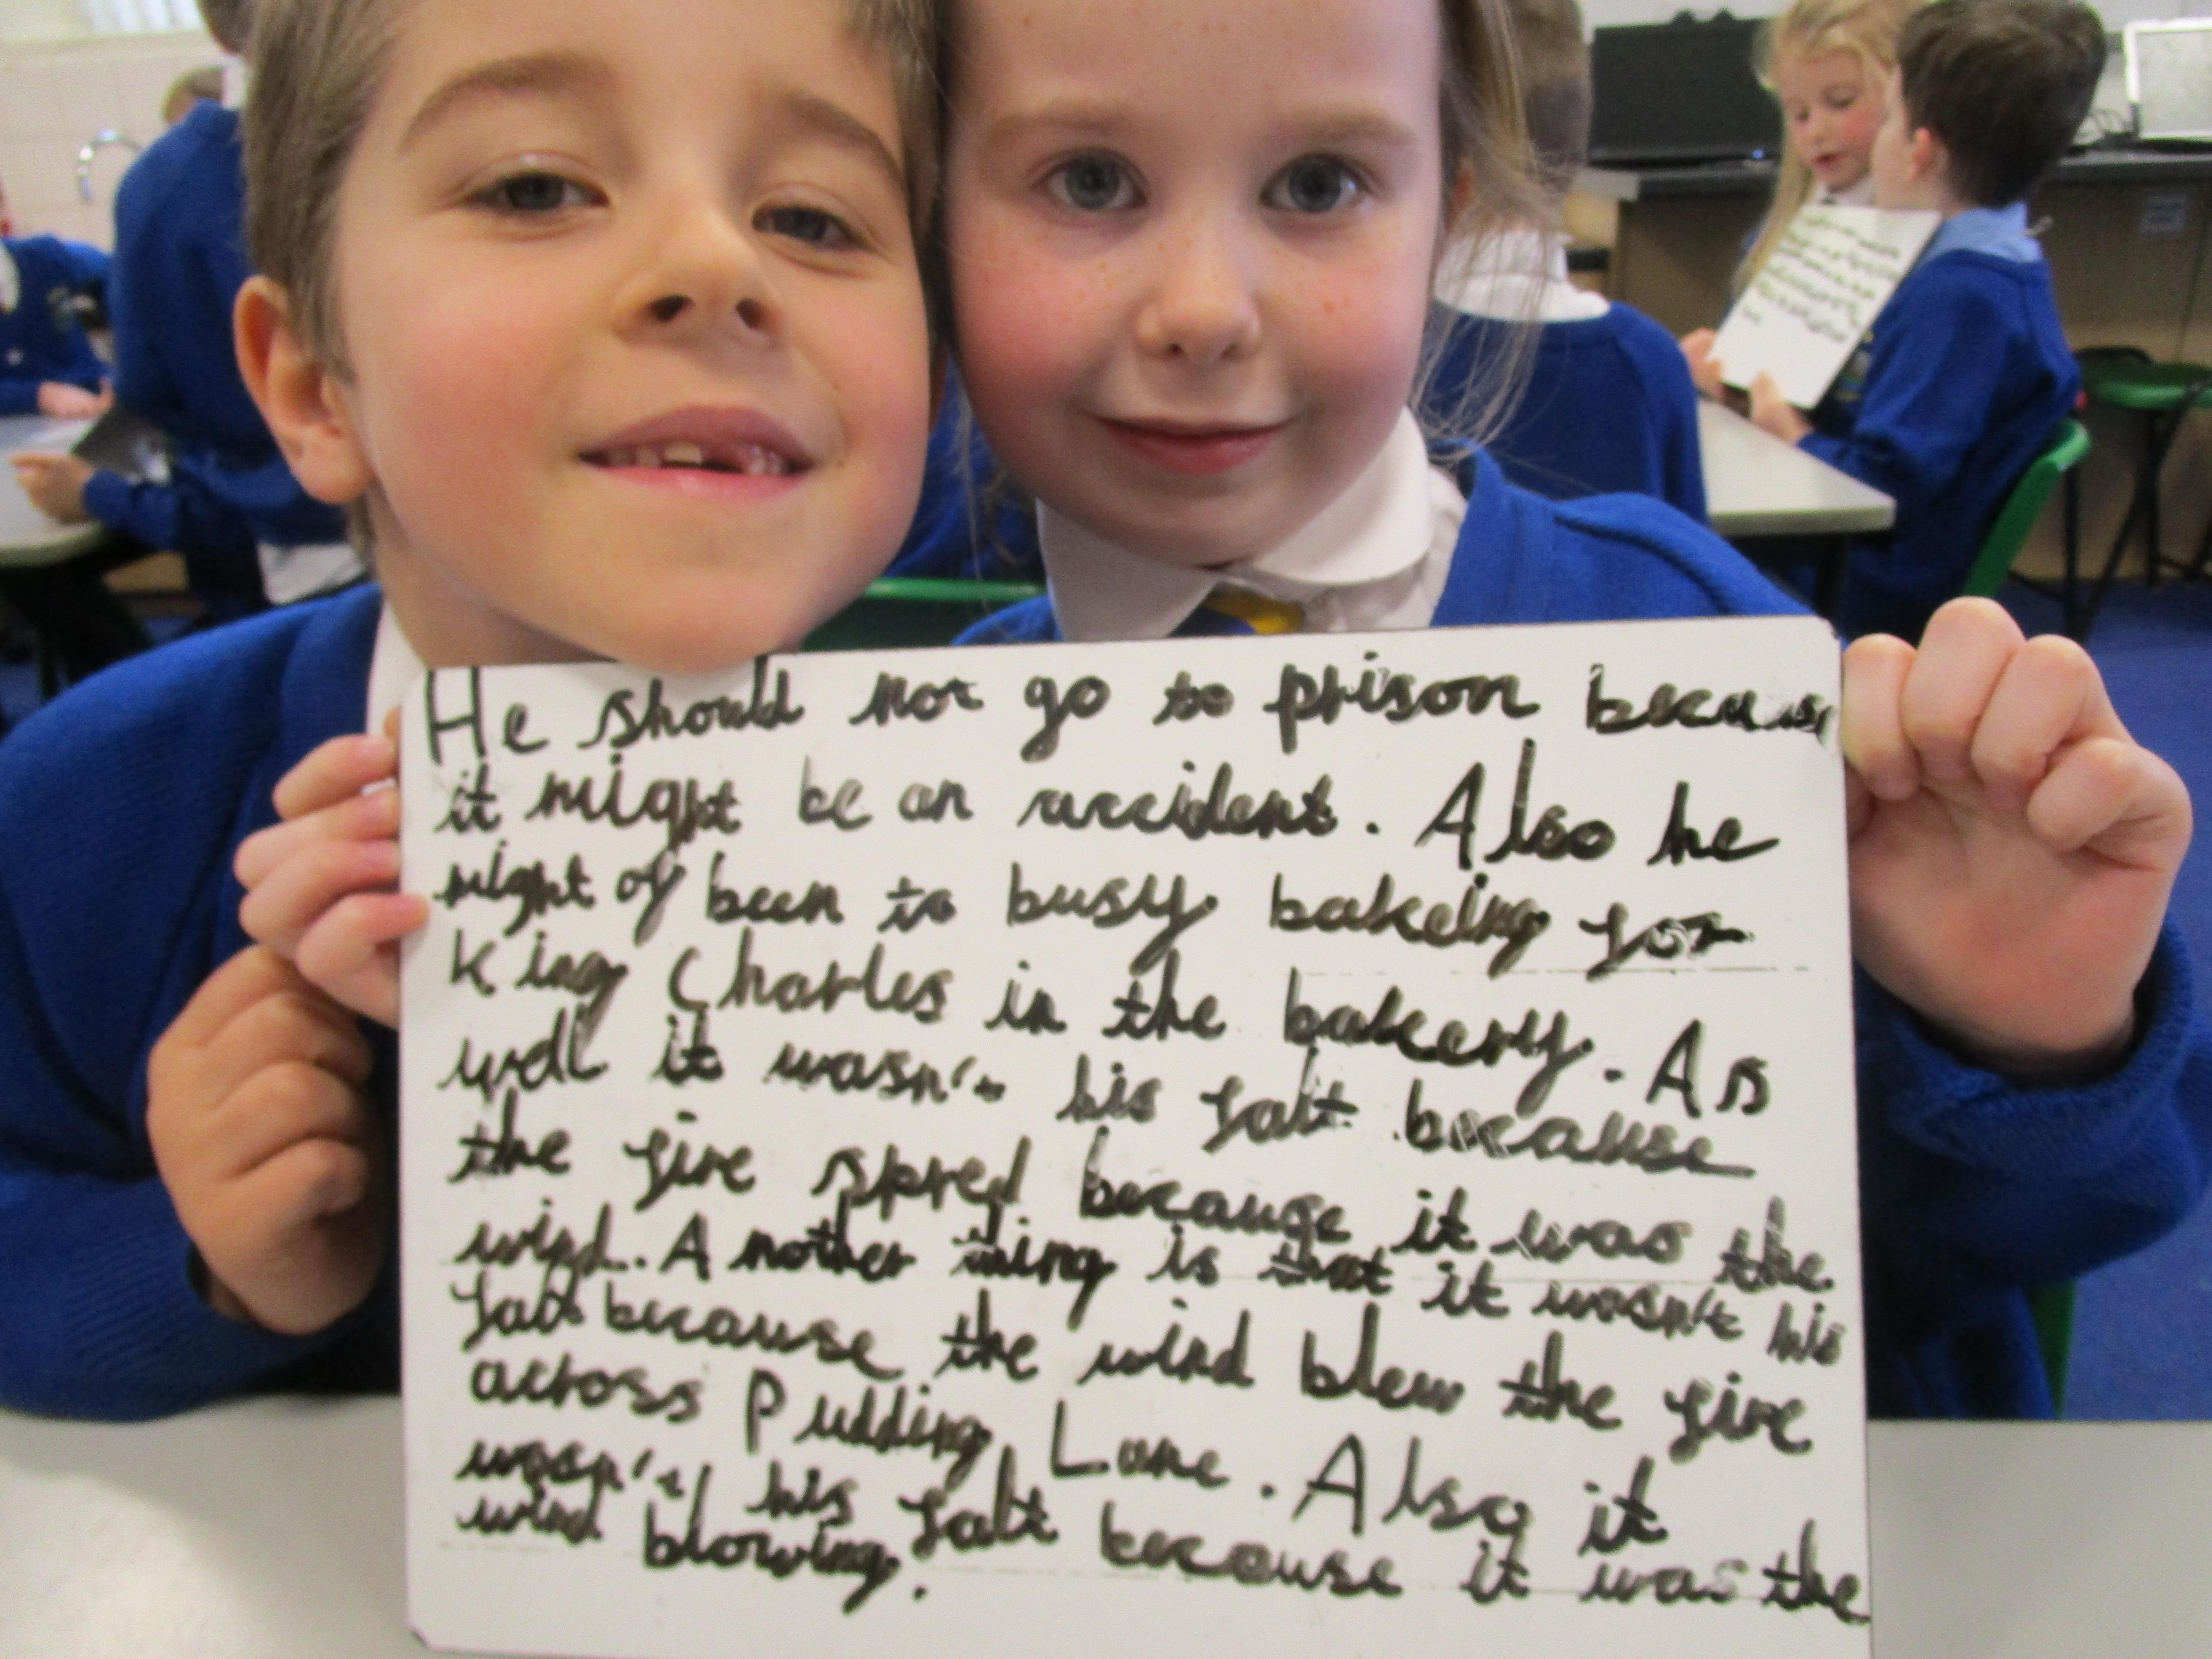 He should not go to prison because
it might be an accident. Also he
might of been to busy bakeing for
King Charles in the bakery. As
well it wasn't his falt because
the fire spred because it was the
wind. Another thing is that it wasn't his
falt because the wind blew the fire
across Pudding Lane. Also it
wasn't his falt because it was the
wind blowing.